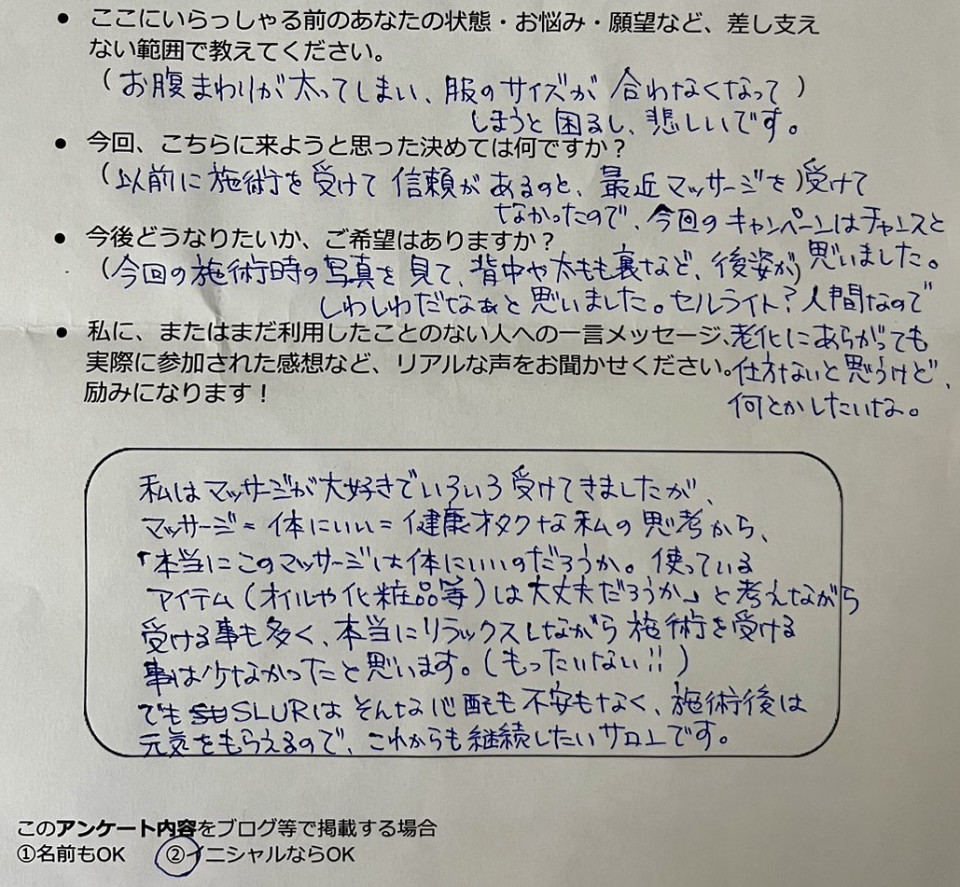 • ここにいらっしゃる前のあなたの状態・お悩み・願望など、差し支え
ない範囲で教えてください。
(お腹まわりが太ってしまい、服のサイズが合わなくなって)
しまうと困るし、悲しいです。
• 今回、こちらに来ようと思った決めては何ですか？
(以前に施術を受けて信頼があるのと、最近マッサージを)受けて
なかったので、今回のキャンペーンはチャンスと
思いました。
• 今後どうなりたいか、ご希望はありますか？
(今回の施術時の写真を見て、背中や太もも裏など、後姿が)
しわしわだなぁと思いました。セルライト?人間なので
老化にあらがっても
仕方ないと思うけど、
何とかしたいな。
• 私に、またはまだ利用したことのない人への一言メッセージ、
実際に参加された感想など、リアルな声をお聞かせください。
励みになります！
私はマッサージが大好きでいろいろ受けてきましたが、
マッサージ=体にいい=健康オタクな私の思考から、
「本当にこのマッサージは体にいいのだろうか。使っている
アイテム(オイルや化粧品等)は大丈夫だろうか」と考えながら
受ける事も多く、本当にリラックスしながら施術を受ける
事は少なかったと思います。(もったいない!!)
でもSLURはそんな心配も不安もなく、施術後は
元気をもらえるので、これからも継続したいサロンです。
このアンケート内容をブログ等で掲載する場合
①名前もOK ②イニシャルならOK